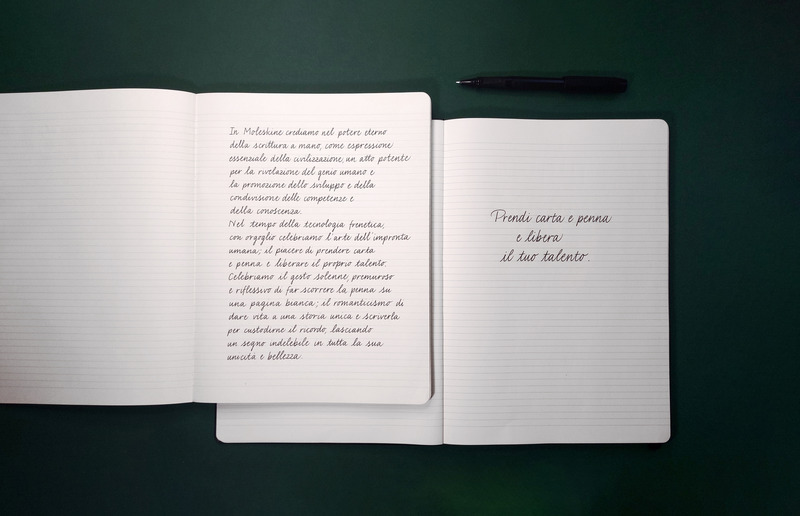 In Moleskine crediamo nel potere eterno
della scrittura a mano, come espressione
essenziale della civilizzazione; un atto potente
per la rivelazione del genio umano e
la promozione dello sviluppo e della
condivisione delle competenze e
della conoscenza.
Nel tempo della tecnologia frenetica,
con orgoglio celebriamo l'arte dell'impronta
umana; il piacere di prendere carta
e penna e liberare il proprio talento.
Celebriamo il gesto solenne, premuroso
e riflessivo di far scorrere la penna su
una pagina bianca; il romanticismo di
dare vita a una storia unica e scriverla
per custodirne il ricordo, lasciando
un segno indelebile in tutta la sua
unicità e bellezza.
Prendi carta e penna
e libera
il tuo talento.